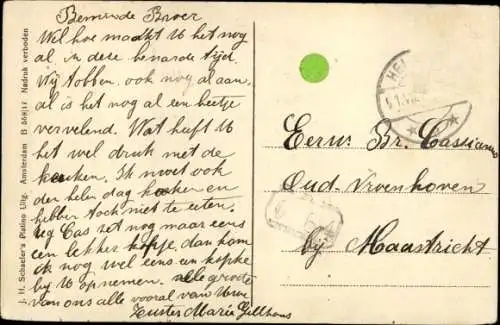 Beminde Broer
Wil hoe maakt U het nog
al in deze benarde tijd.
Wij tobben ook nog al aan,
al is het nog al een beetje
vervelend. Wat heeft U
het wel druk met de
keuken. Ik moet ook
den helen dag koken en
hebber toch niet te eten.
Cas zet nog maar eens
een lekker kopje, dan kom
ik nog wel eens een kopke
bij U opnemen. alle groete
van ons alle vooral van Uwe
Zuster Maria
J. H. Schaefer's Platino Uitg. Amsterdam Nadruk verboden
HE
Eerw. Br. Cassianus
Oud-Vroenhoven
bij Maastricht